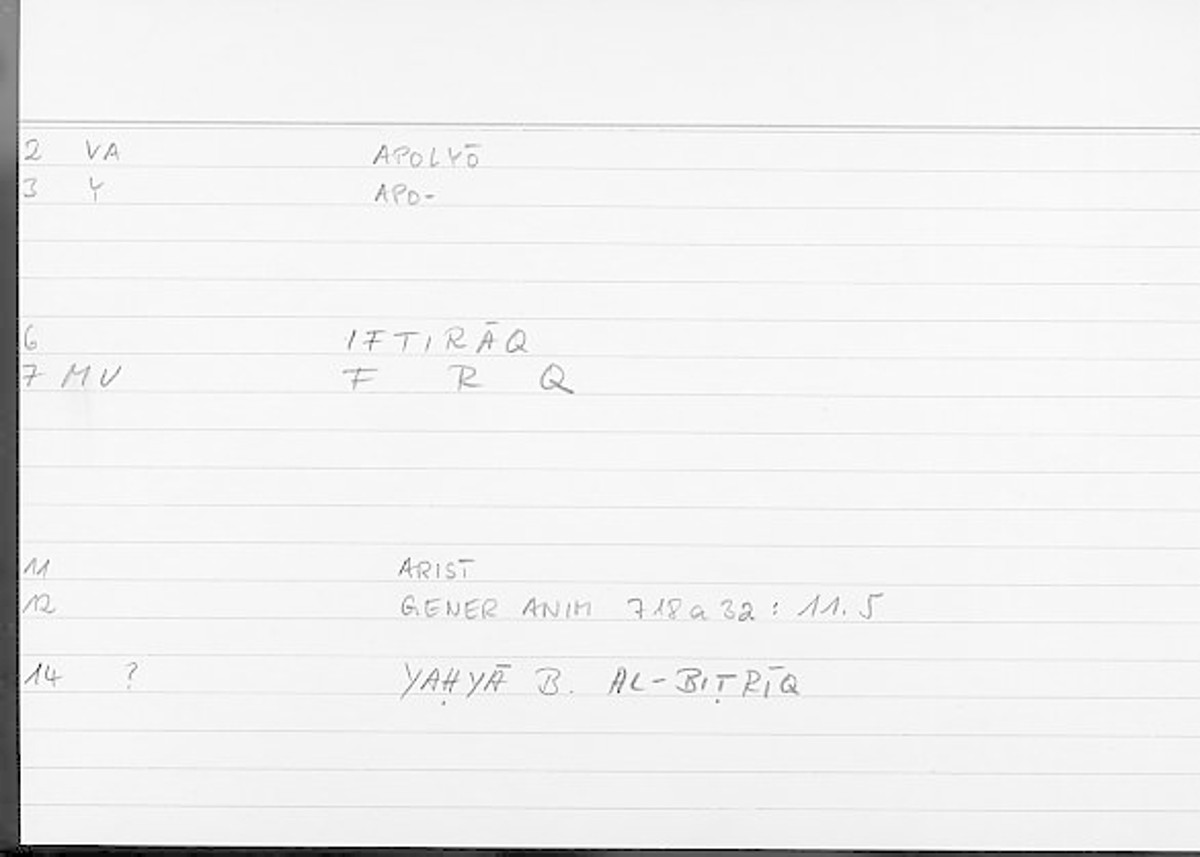 2 VA APOLYŌ
3 Y APO-
6 IFTIRĀQ
7 MV F R Q
11 ARIST
12 GENER ANIM 718a32 : 11.5
14 ? YAḤYĀ B. AL-BIṬRĪQ